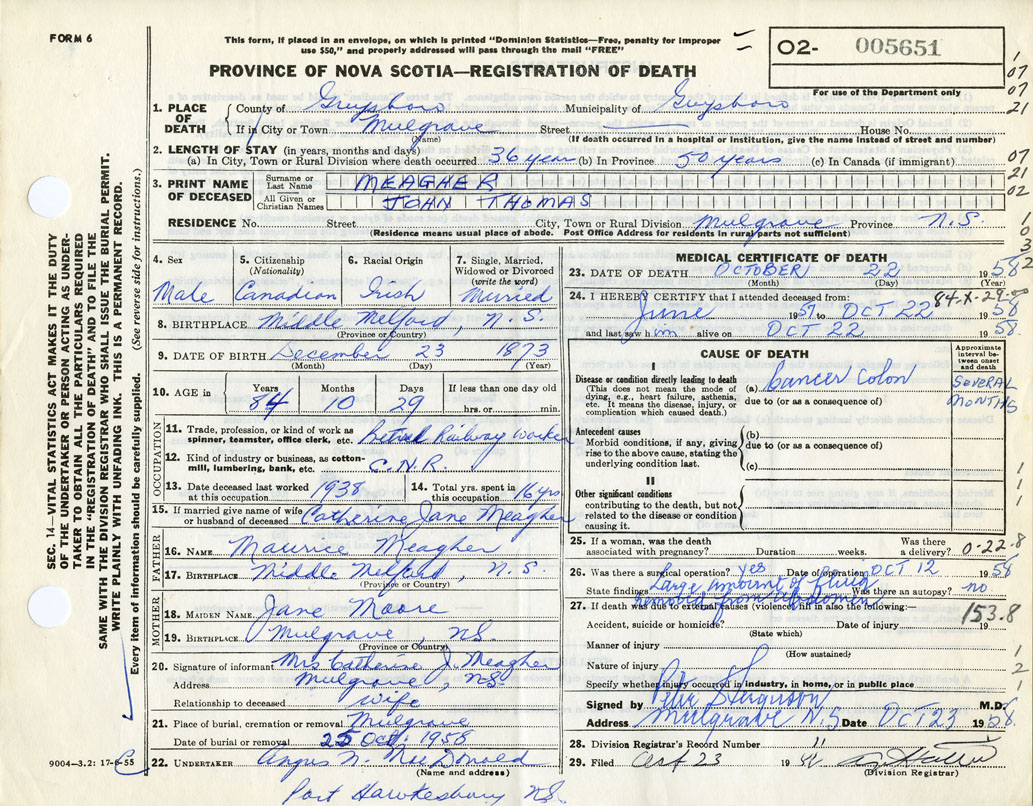 FORM 6
This form, if placed in an envelope, on which is printed "Dominion Statistics—Free, penalty for improper
use $50," and properly addressed will pass through the mail "FREE"
O2- 005651
For use of the Department only
PROVINCE OF NOVA SCOTIA—REGISTRATION OF DEATH
1. PLACE OF DEATH County of Guysboro Municipality of Guysboro
If in City or Town Mulgrave Street House No.
(Name) (If death occurred in a hospital or institution, give the name instead of street and number)
2. LENGTH OF STAY (in years, months and days)
(a) In City, Town or Rural Division where death occurred 36 year (b) In Province 50 years (c) In Canada (if immigrant)
3. PRINT NAME OF DECEASED Surname or Last Name MEAGHER
All Given or Christian Names JOHN THOMAS
RESIDENCE No. Street City, Town or Rural Division Mulgrave Province N.S.
(Residence means usual place of abode. Post Office Address for residents in rural parts not sufficient)
1
07
07
21
07
21
02
1
0
3
2
4. Sex 5. Citizenship (Nationality) 6. Racial Origin 7. Single, Married, Widowed or Divorced (write the word)
Male Canadian Irish Married
8. BIRTHPLACE Middle Melford, N.S.
(Province or Country)
9. DATE OF BIRTH December 23 1873
(Month) (Day) (Year)
10. AGE in Years Months Days If less than one day old
84 10 29 hrs. or min.
OCCUPATION
11. Trade, profession, or kind of work as spinner, teamster, office clerk, etc. Retired Railway Worker
12. Kind of industry or business, as cotton-mill, lumbering, bank, etc. C.N.R.
13. Date deceased last worked at this occupation 1938 14. Total yrs. spent in this occupation 16 yrs
15. If married give name of wife or husband of deceased Catherine Jane Meagher
FATHER
16. NAME Maurice Meagher
17. BIRTHPLACE Middle Melford, N.S.
(Province or Country)
MOTHER
18. MAIDEN NAME Jane Moore
19. BIRTHPLACE Mulgrave, N.S.
(Province or Country)
20. Signature of informant Mrs Catherine J. Meagher
Address Mulgrave, N.S.
Relationship to deceased wife
21. Place of burial, cremation or removal Mulgrave
Date of burial or removal 25 Oct. 1958
22. UNDERTAKER Angus N. MacDonald
(Name and address)
Port Hawkesbury N.S.
MEDICAL CERTIFICATE OF DEATH
23. DATE OF DEATH OCTOBER 22 1958
(Month) (Day) (Year)
24. I HEREBY CERTIFY that I attended deceased from: 84-X-29-00
June 1957 to OCT 22 1958
and last saw him alive on OCT 22 1958.
CAUSE OF DEATH
Approximate interval between onset and death
I
Disease or condition directly leading to death
(This does not mean the mode of dying, e.g., heart failure, asthenia, etc. It means the disease, injury, or complication which caused death.)
(a) Cancer Colon SEVERAL MONTHS
due to (or as a consequence of)
Antecedent causes
Morbid conditions, if any, giving rise to the above cause, stating the underlying condition last.
(b)
due to (or as a consequence of)
(c)
II
Other significant conditions
contributing to the death, but not related to the disease or condition causing it.
1
1
1
25. If a woman, was the death associated with pregnancy? Duration weeks. Was there a delivery? 0-22.8
26. Was there a surgical operation? yes Date of operation OCT 12 1958
State findings Large amount of fluid Was there an autopsy? no
removed from abdomen
27. If death was due to external causes (violence) fill in also the following:—
153.8
Accident, suicide or homicide? Date of injury 19
(State which)
Manner of injury
(How sustained)
Nature of injury
Specify whether injury occurred in industry, in home, or in public place
1
2
1
Signed by M.D.
Address Mulgrave N.S Date OCT 23 1958.
28. Division Registrar's Record Number 11
29. Filed 23 19
(Division Registrar)
SEC. 14—VITAL STATISTICS ACT MAKES IT THE DUTY
OF THE UNDERTAKER OR PERSON ACTING AS UNDER-
TAKER TO OBTAIN ALL THE PARTICULARS REQUIRED
IN THE "REGISTRATION OF DEATH" AND TO FILE THE
SAME WITH THE DIVISION REGISTRAR WHO SHALL ISSUE THE BURIAL PERMIT.
WRITE PLAINLY WITH UNFADING INK. THIS IS A PERMANENT RECORD.
Every item of information should be carefully supplied. (See reverse side for instructions.)
9004—3.2: 17-6-55